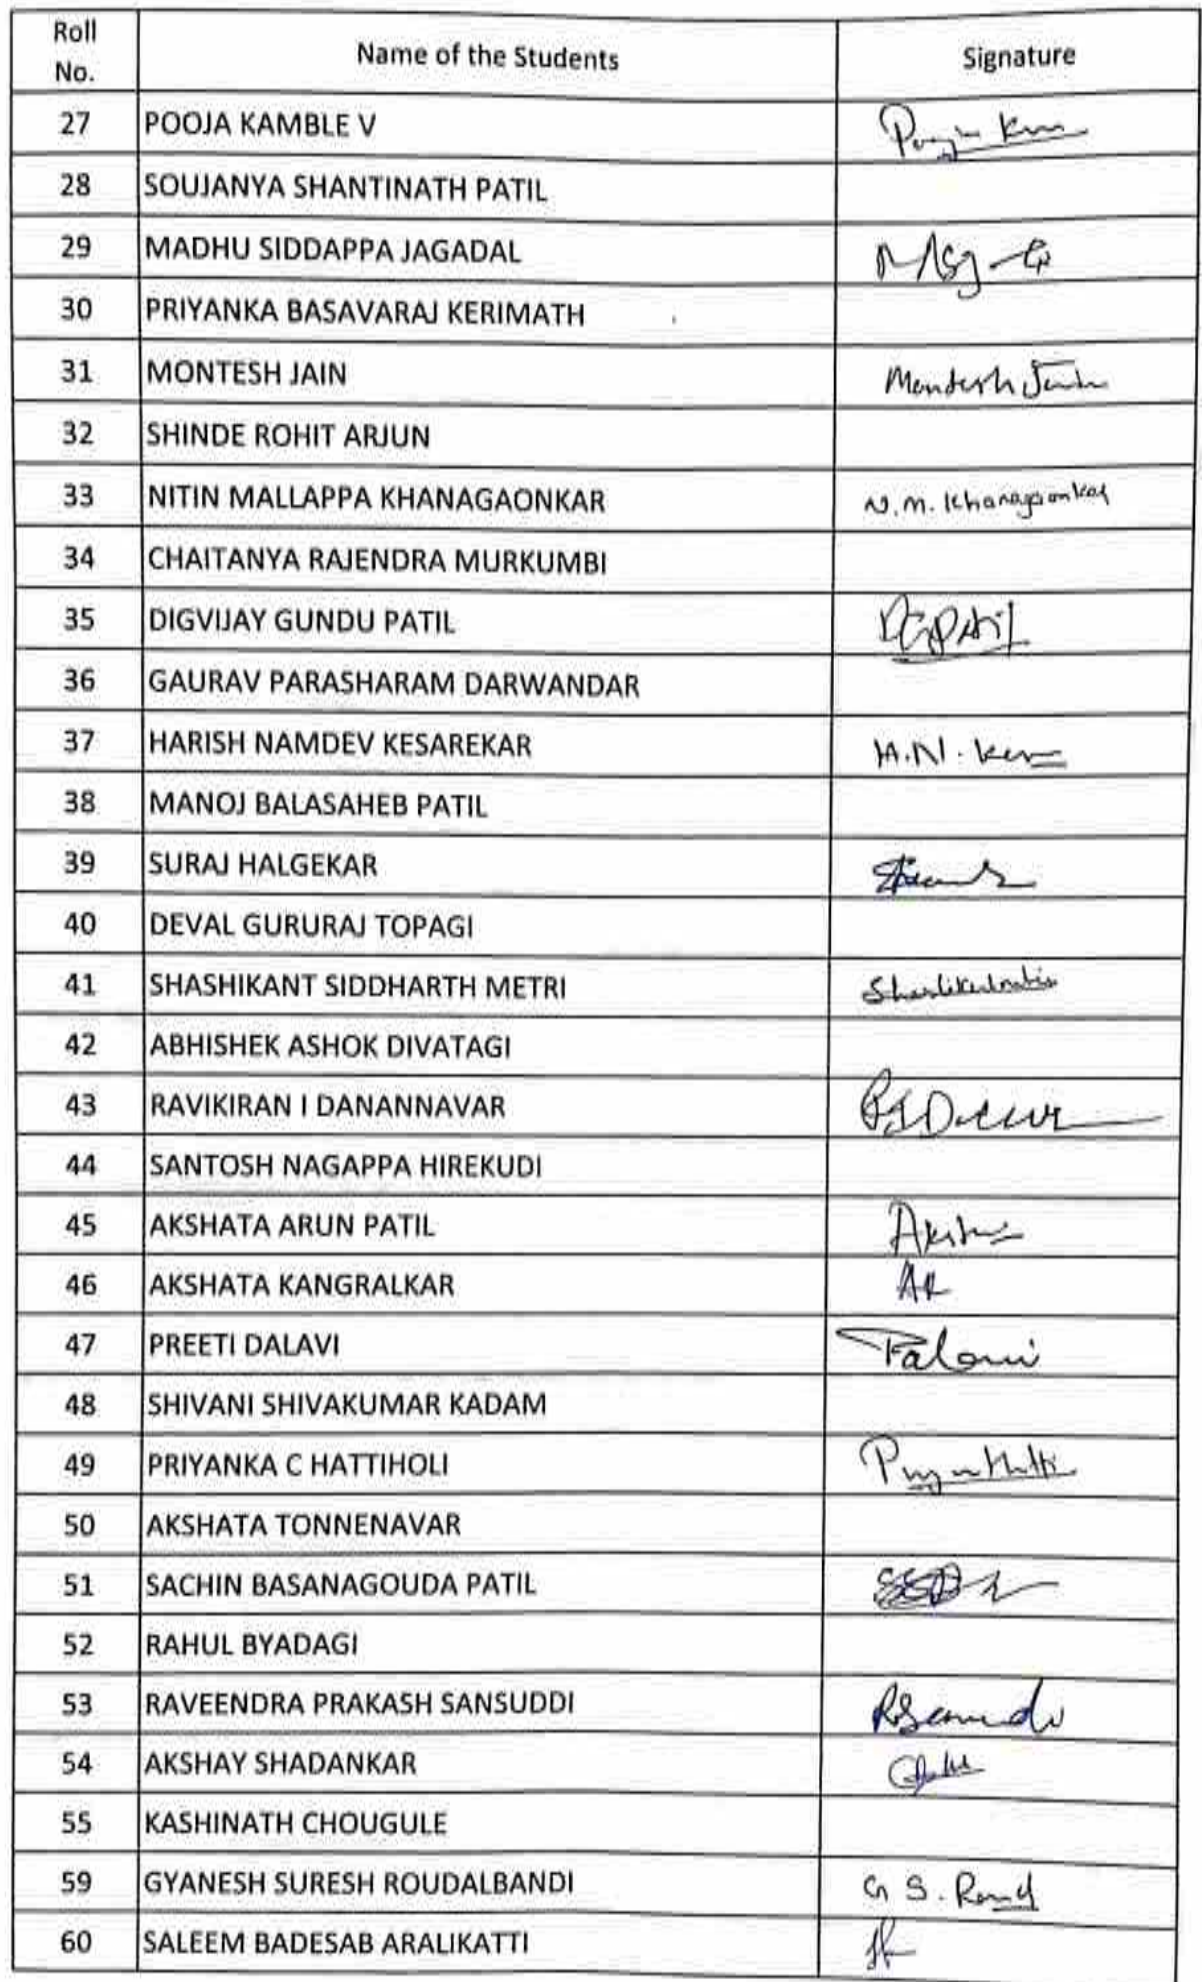 Roll No. Name of the Students Signature
27 POOJA KAMBLE V
28 SOUJANYA SHANTINATH PATIL
29 MADHU SIDDAPPA JAGADAL
30 PRIYANKA BASAVARAJ KERIMATH
31 MONTESH JAIN Montesh Jain
32 SHINDE ROHIT ARJUN
33 NITIN MALLAPPA KHANAGAONKAR N.M. Khanagaonkar
34 CHAITANYA RAJENDRA MURKUMBI
35 DIGVIJAY GUNDU PATIL DGPatil
36 GAURAV PARASHARAM DARWANDAR
37 HARISH NAMDEV KESAREKAR H.N.
38 MANOJ BALASAHEB PATIL
39 SURAJ HALGEKAR
40 DEVAL GURURAJ TOPAGI
41 SHASHIKANT SIDDHARTH METRI
42 ABHISHEK ASHOK DIVATAGI
43 RAVIKIRAN I DANANNAVAR
44 SANTOSH NAGAPPA HIREKUDI
45 AKSHATA ARUN PATIL
46 AKSHATA KANGRALKAR AK
47 PREETI DALAVI
48 SHIVANI SHIVAKUMAR KADAM
49 PRIYANKA C HATTIHOLI
50 AKSHATA TONNENAVAR
51 SACHIN BASANAGOUDA PATIL
52 RAHUL BYADAGI
53 RAVEENDRA PRAKASH SANSUDDI
54 AKSHAY SHADANKAR
55 KASHINATH CHOUGULE
59 GYANESH SURESH ROUDALBANDI G S. Roud
60 SALEEM BADESAB ARALIKATTI